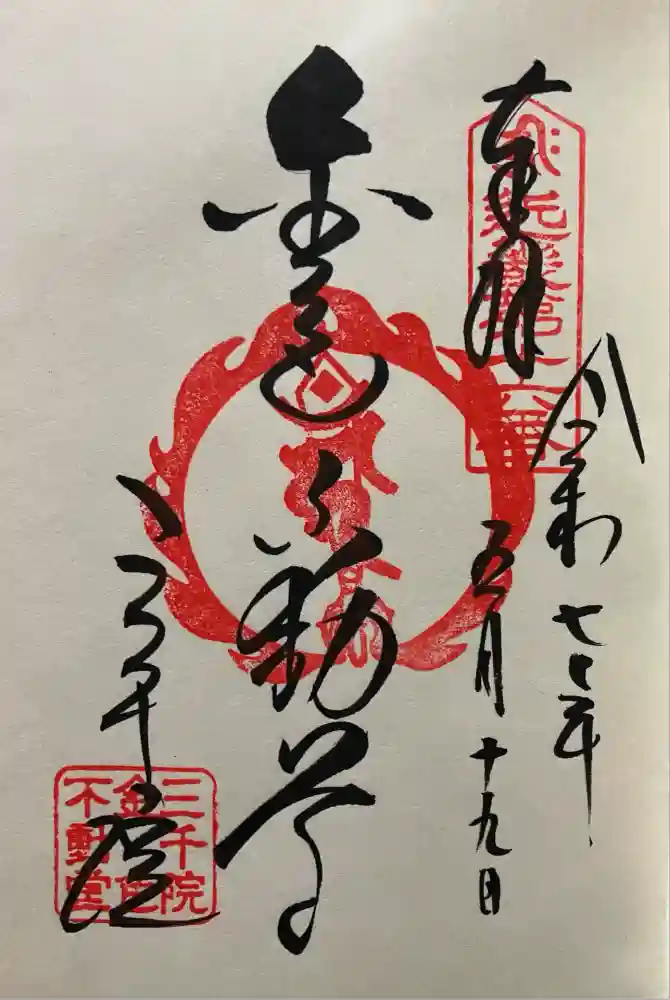 奉拝
令和七年
五月十九日
金色不動尊
三千院
三千院
金色
不動堂